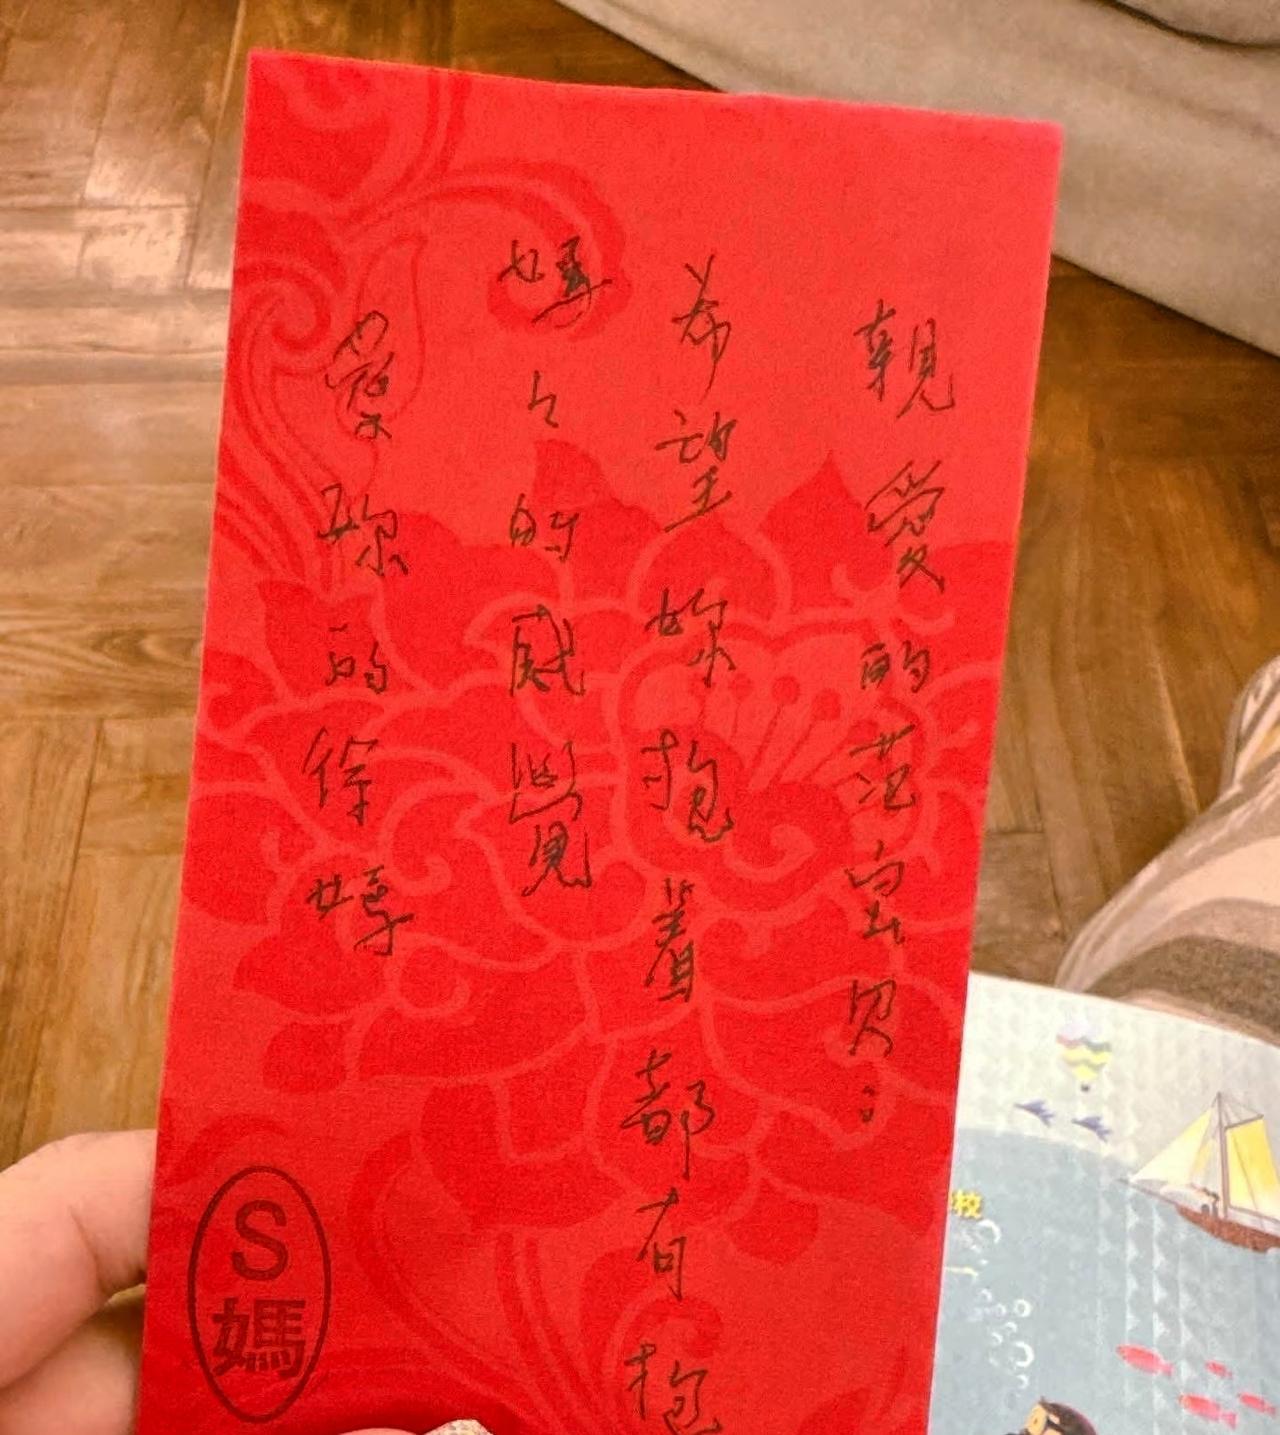 親愛的范寶貝：
希望妳抱著都有抱
媽々的感覺
愛妳的徐媽
S媽
校